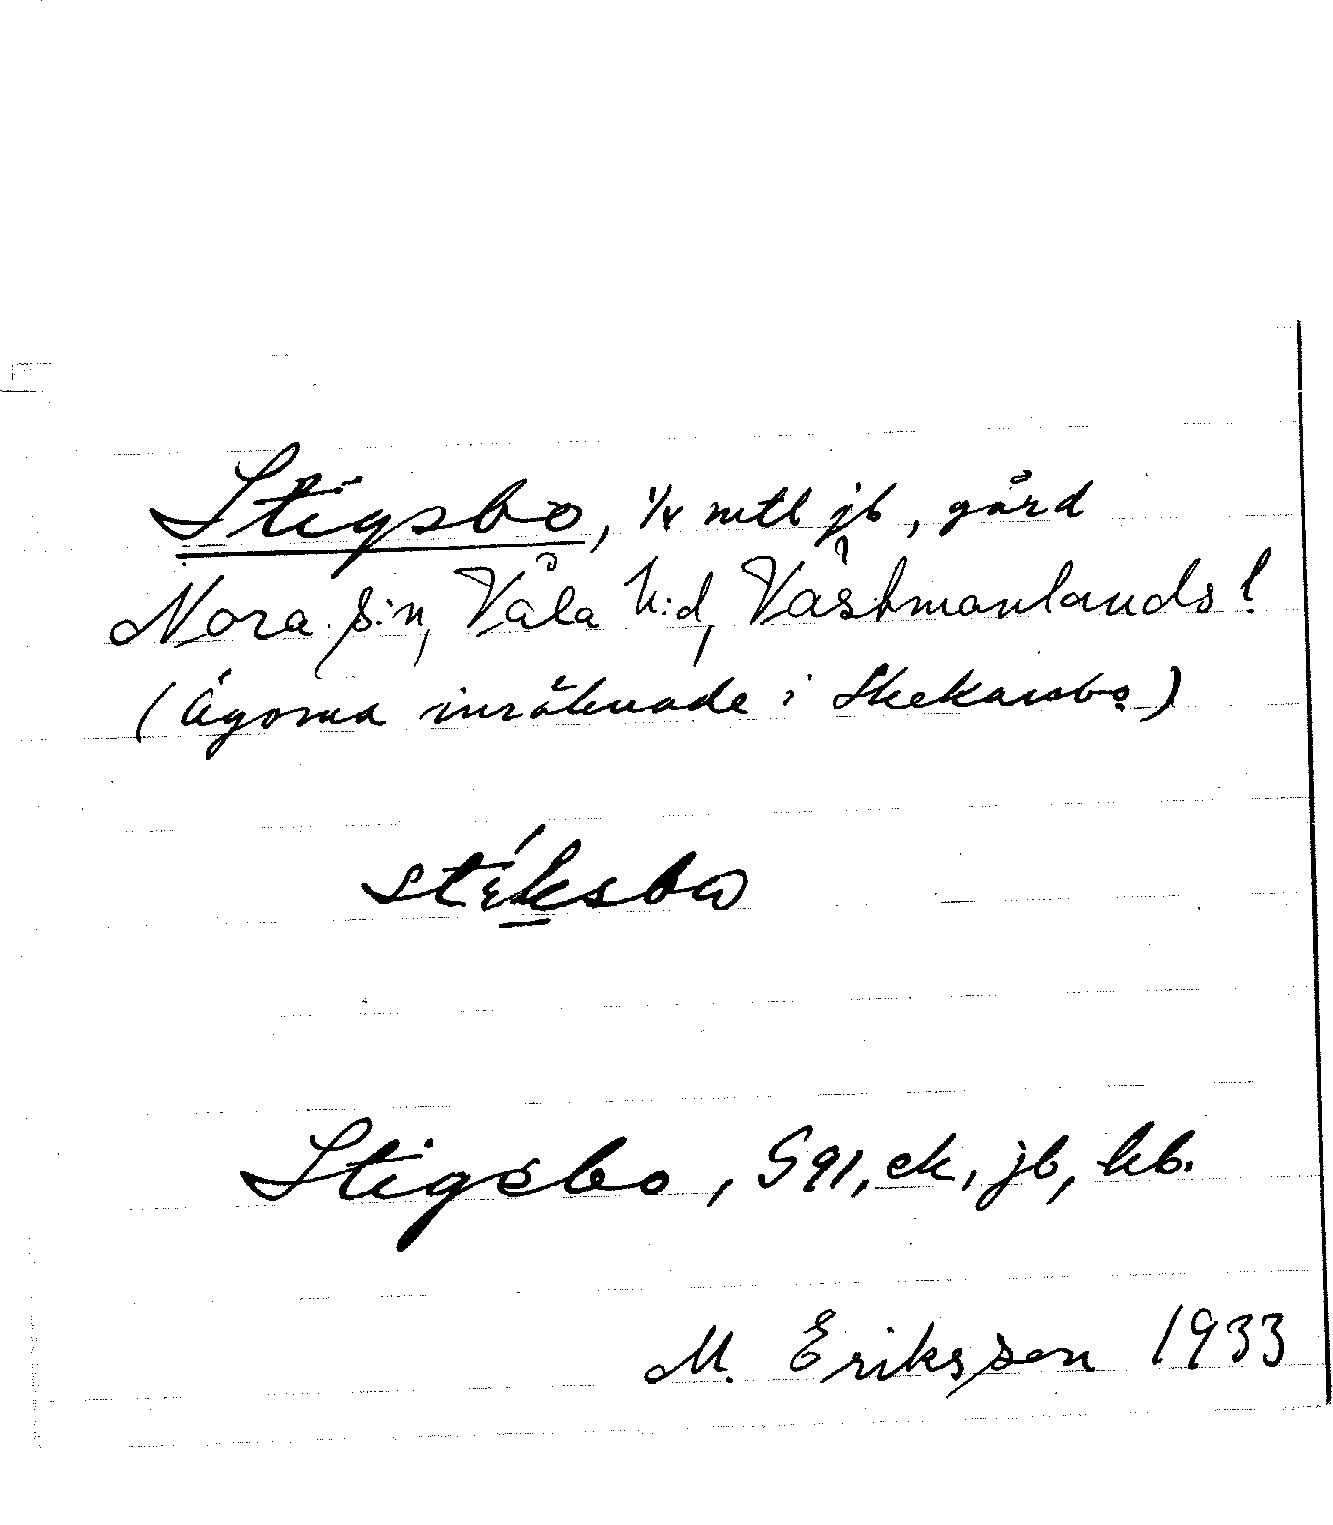 Stigsbo, 1/4 mtl jb, gård
Nora s:n, Våla h:d, Västmanlands l
(Ägorna inräknade i Skekarsbo)
Stigsbo, S91, ek, jb, kb.
M. Eriksson 1933